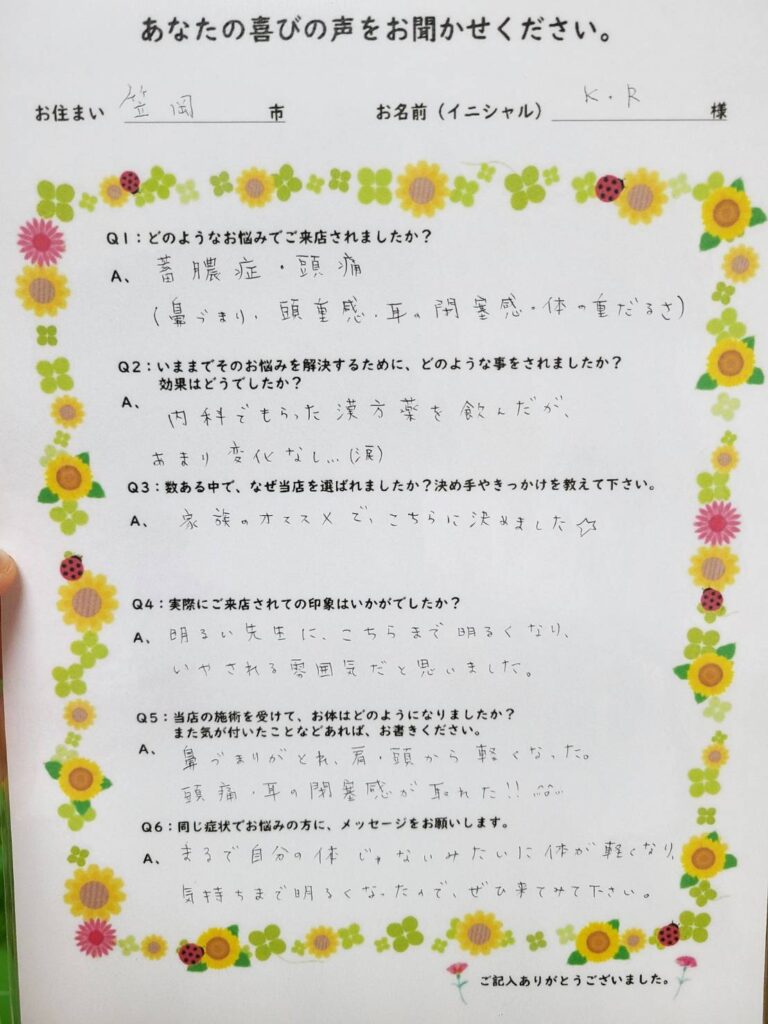 あなたの喜びの声をお聞かせください。
お住まい 笠岡 市 お名前(イニシャル) K・R 様
Q1:どのようなお悩みでご来店されましたか?
A、 蓄膿症・頭痛
(鼻づまり・頭重感・耳の閉塞感・体の重だるさ)
Q2:いままでそのお悩みを解決するために、どのような事をされましたか?
効果はどうでしたか?
A、 内科でもらった漢方薬を飲んだが、
あまり変化なし...(涙)
Q3:数ある中で、なぜ当店を選ばれましたか?決め手やきっかけを教えて下さい。
A、 家族のオススメで、こちらに決めました☆
Q4:実際にご来店されての印象はいかがでしたか?
A、 明るい先生に、こちらまで明るくなり、
いやされる雰囲気だと思いました。
Q5:当店の施術を受けて、お体はどのようになりましたか?
また気が付いたことなどあれば、お書きください。
A、 鼻づまりがとれ、肩・頭から軽くなった。
頭痛・耳の閉塞感が取れた!!
Q6:同じ症状でお悩みの方に、メッセージをお願いします。
A、 まるで自分の体じゃないみたいに体が軽くなり、
気持ちまで明るくなったので、ぜひ来てみて下さい。
ご記入ありがとうございました。